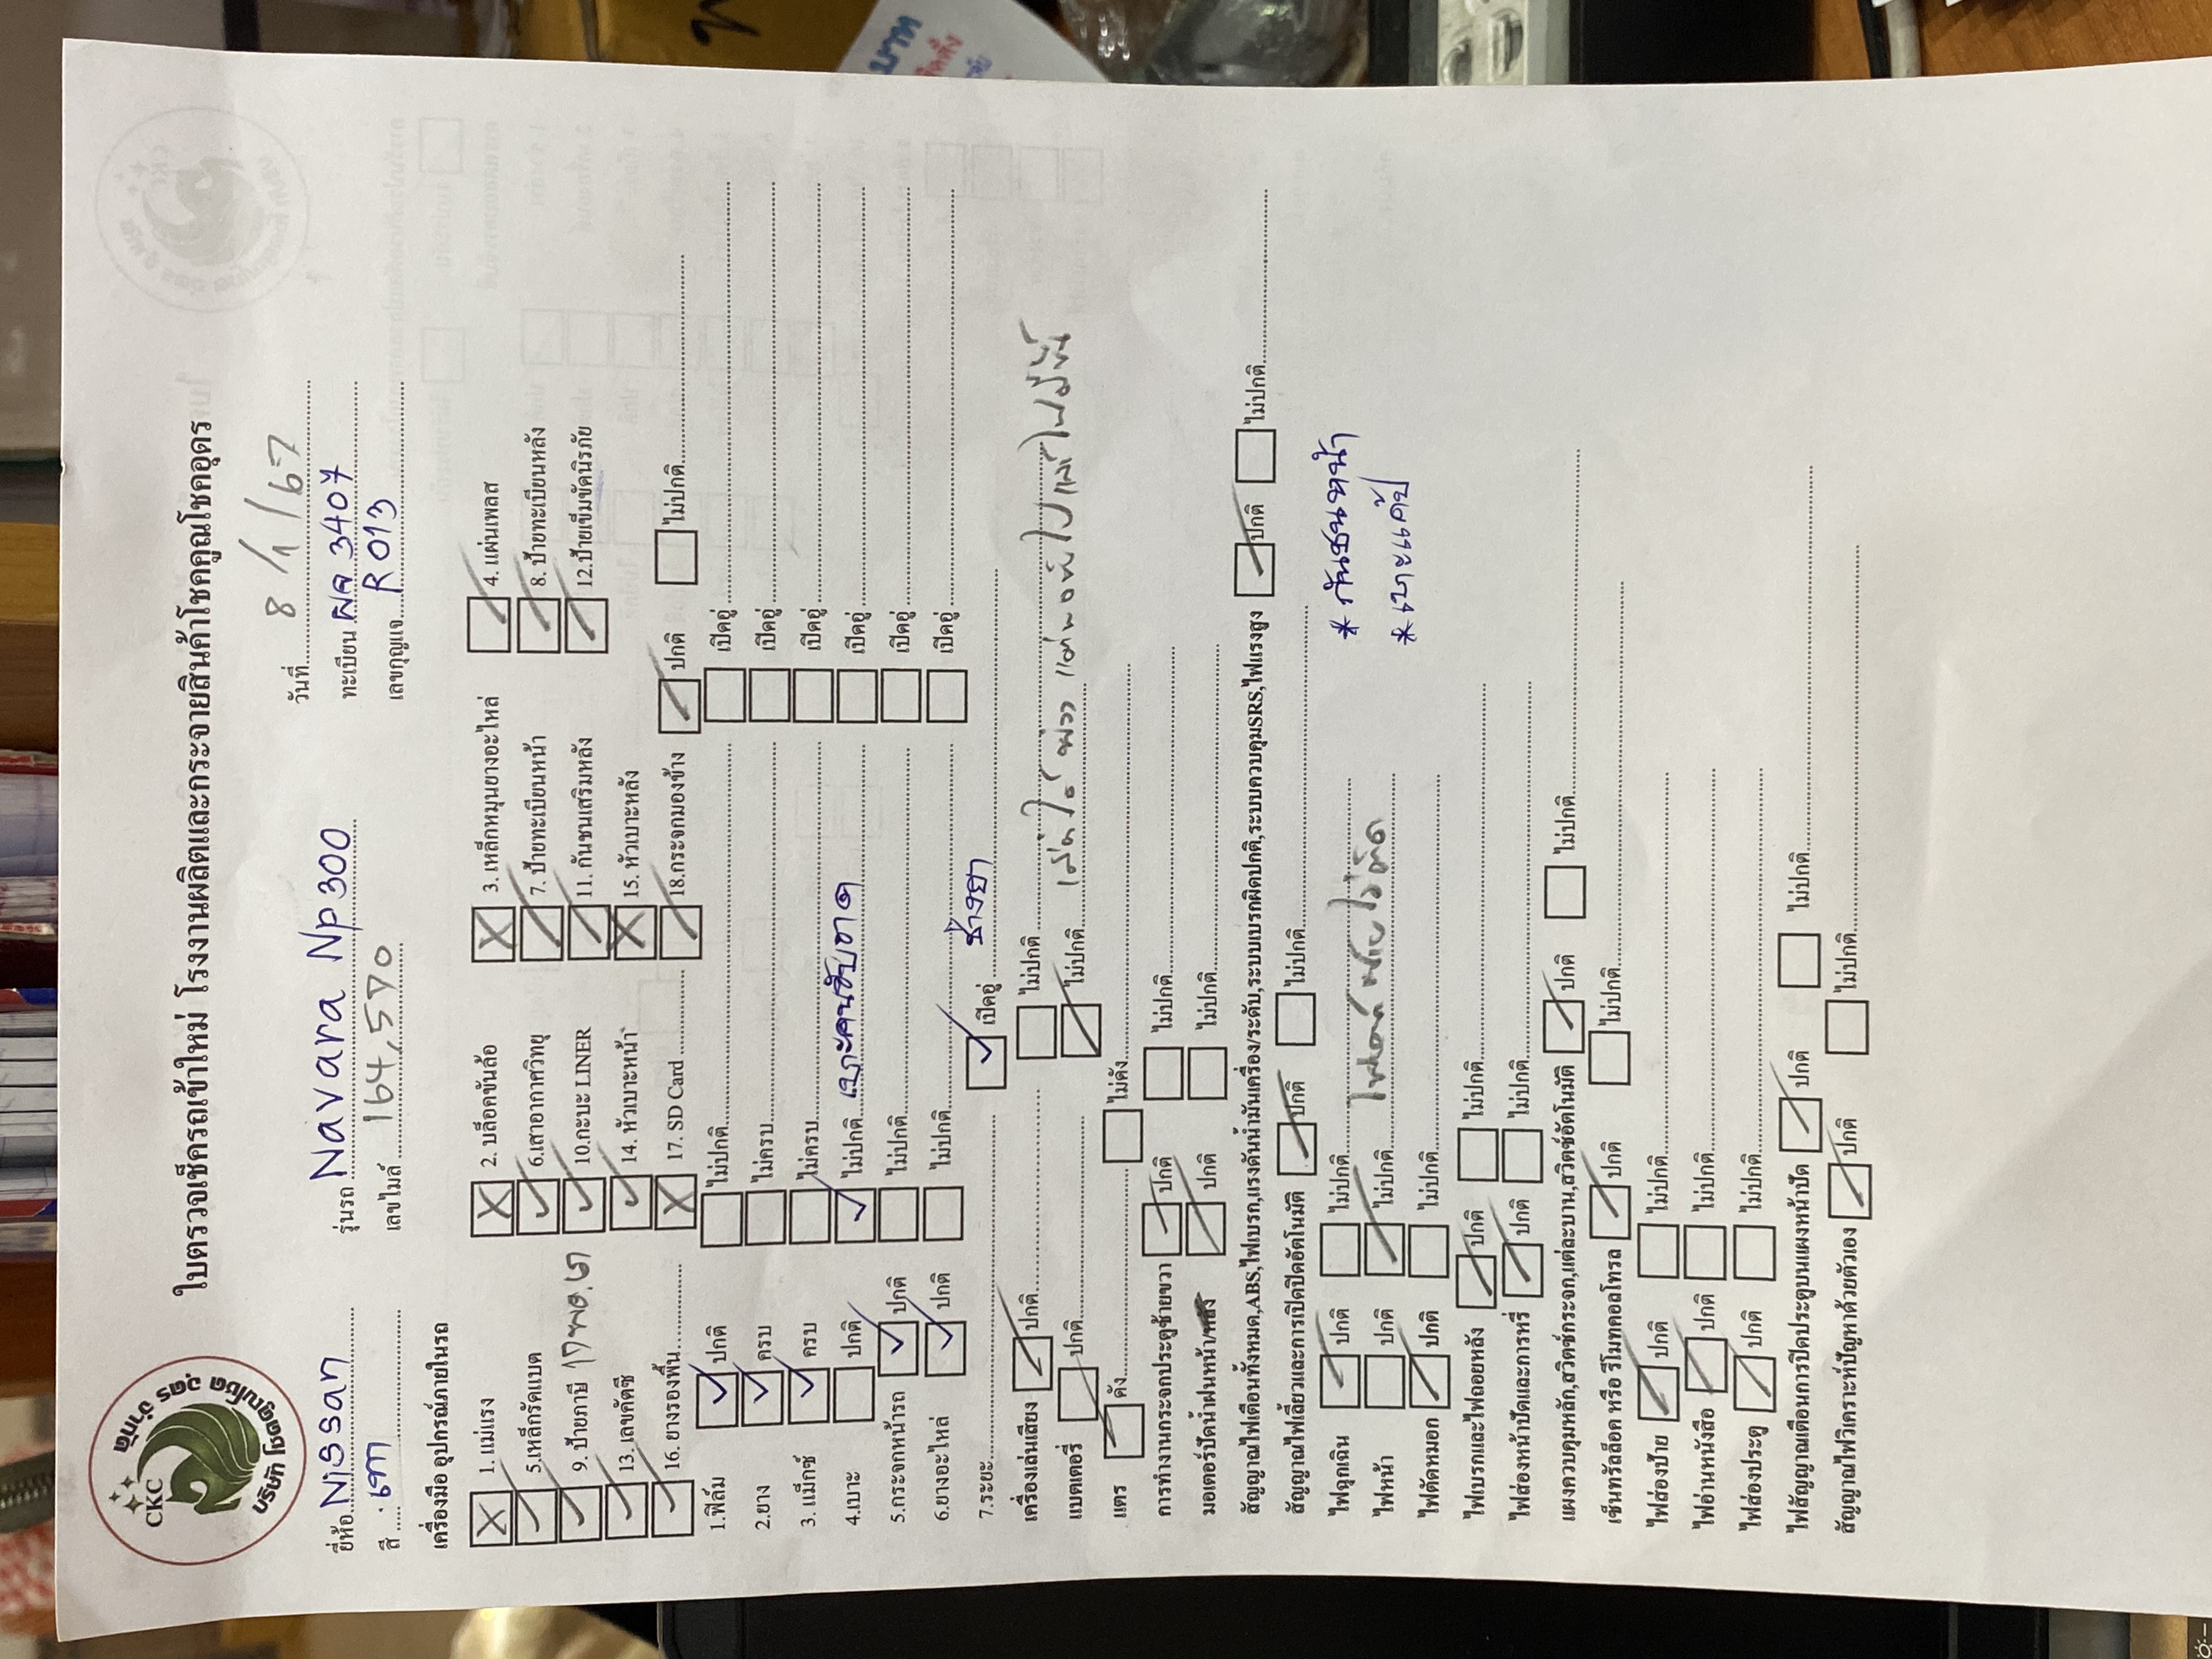 ใบตรวจเช็ครถเข้าใหม่ โรงงานผลิตและกระจายสินค้าโชคคูณโชคอุดร
CKC
บริษัท โชคคูณโชค อุดร จำกัด
วันที่ 8/1/67
ยี่ห้อ Nissan รุ่นรถ Navara Np300 ทะเบียน ผล 3407
สี เทา เลขไมล์ 164,570 เลขกุญแจ R013
เครื่องมือ อุปกรณ์ภายในรถ
1. แม่แรง 2. บล็อคขันล้อ 3. เหล็กหมุนยางอะไหล่ 4. แผ่นเพลส
5.เหล็กรัดแบต 6.เสาอากาศวิทยุ 7. ป้ายทะเบียนหน้า 8. ป้ายทะเบียนหลัง
9. ป้ายภาษี 17 พอ. 10.กะบะ LINER 11. กันชนเสริมหลัง 12.ป้ายเข็มขัดนิรภัย
13. เลขคัตซี 14. หัวเบาะหน้า 15. หัวเบาะหลัง
16. ยางรองพื้น 17. SD Card 18.กระจกมองข้าง ปกติ ไม่ปกติ
1.ฟิล์ม ปกติ ไม่ปกติ เปิดอู่
2.ยาง ครบ ไม่ครบ เปิดอู่
3. แม็กซ์ ครบ ไม่ครบ เปิดอู่
4.เบาะ ปกติ ไม่ปกติ เบาะคนขับขาด เปิดอู่
5.กระจกหน้ารถ ปกติ ไม่ปกติ เปิดอู่
6.ยางอะไหล่ ปกติ ไม่ปกติ เปิดอู่
7.ระยะ เปิดอู่ ช่างยา
เครื่องเล่นเสียง ปกติ ไม่ปกติ
แบตเตอรี่ ปกติ ไม่ปกติ
แตร ดัง ไม่ดัง
การทำงานกระจกประตูซ้ายขวา ปกติ ไม่ปกติ
มอเตอร์ปัดน้ำฝนหน้า/ ปกติ ไม่ปกติ
สัญญาณไฟเตือนทั้งหมด,ABS,ไฟเบรก,แรงดันน้ำมันเครื่อง/ระดับ,ระบบเบรกผิดปกติ,ระบบควบคุมSRS,ไฟแรงสูง ปกติ ไม่ปกติ
สัญญาณไฟเลี้ยวและการเปิดปิดอัตโนมัติ ปกติ ไม่ปกติ
ไฟฉุกเฉิน ปกติ ไม่ปกติ * กันชนหน้า
ไฟหน้า ปกติ ไม่ปกติ * เบาะแค๊ป
ไฟตัดหมอก ปกติ ไม่ปกติ
ไฟเบรกและไฟถอยหลัง ปกติ ไม่ปกติ
ไฟส่องหน้าปัดและการหรี่ ปกติ ไม่ปกติ
แผงควบคุมหลัก,สวิตช์กระจก,แต่ละบาน,สวิตช์อัตโนมัติ ปกติ ไม่ปกติ
เซ็นทรัลล็อค หรือ รีโมทคอลโทรล ปกติ ไม่ปกติ
ไฟส่องป้าย ปกติ ไม่ปกติ
ไฟอ่านหนังสือ ปกติ ไม่ปกติ
ไฟส่องประตู ปกติ ไม่ปกติ
ไฟสัญญาณเตือนการปิดประตูบนแผงหน้าปัด ปกติ ไม่ปกติ
สัญญาณไฟวิเคราะห์ปัญหาด้วยตัวเอง ปกติ ไม่ปกติ